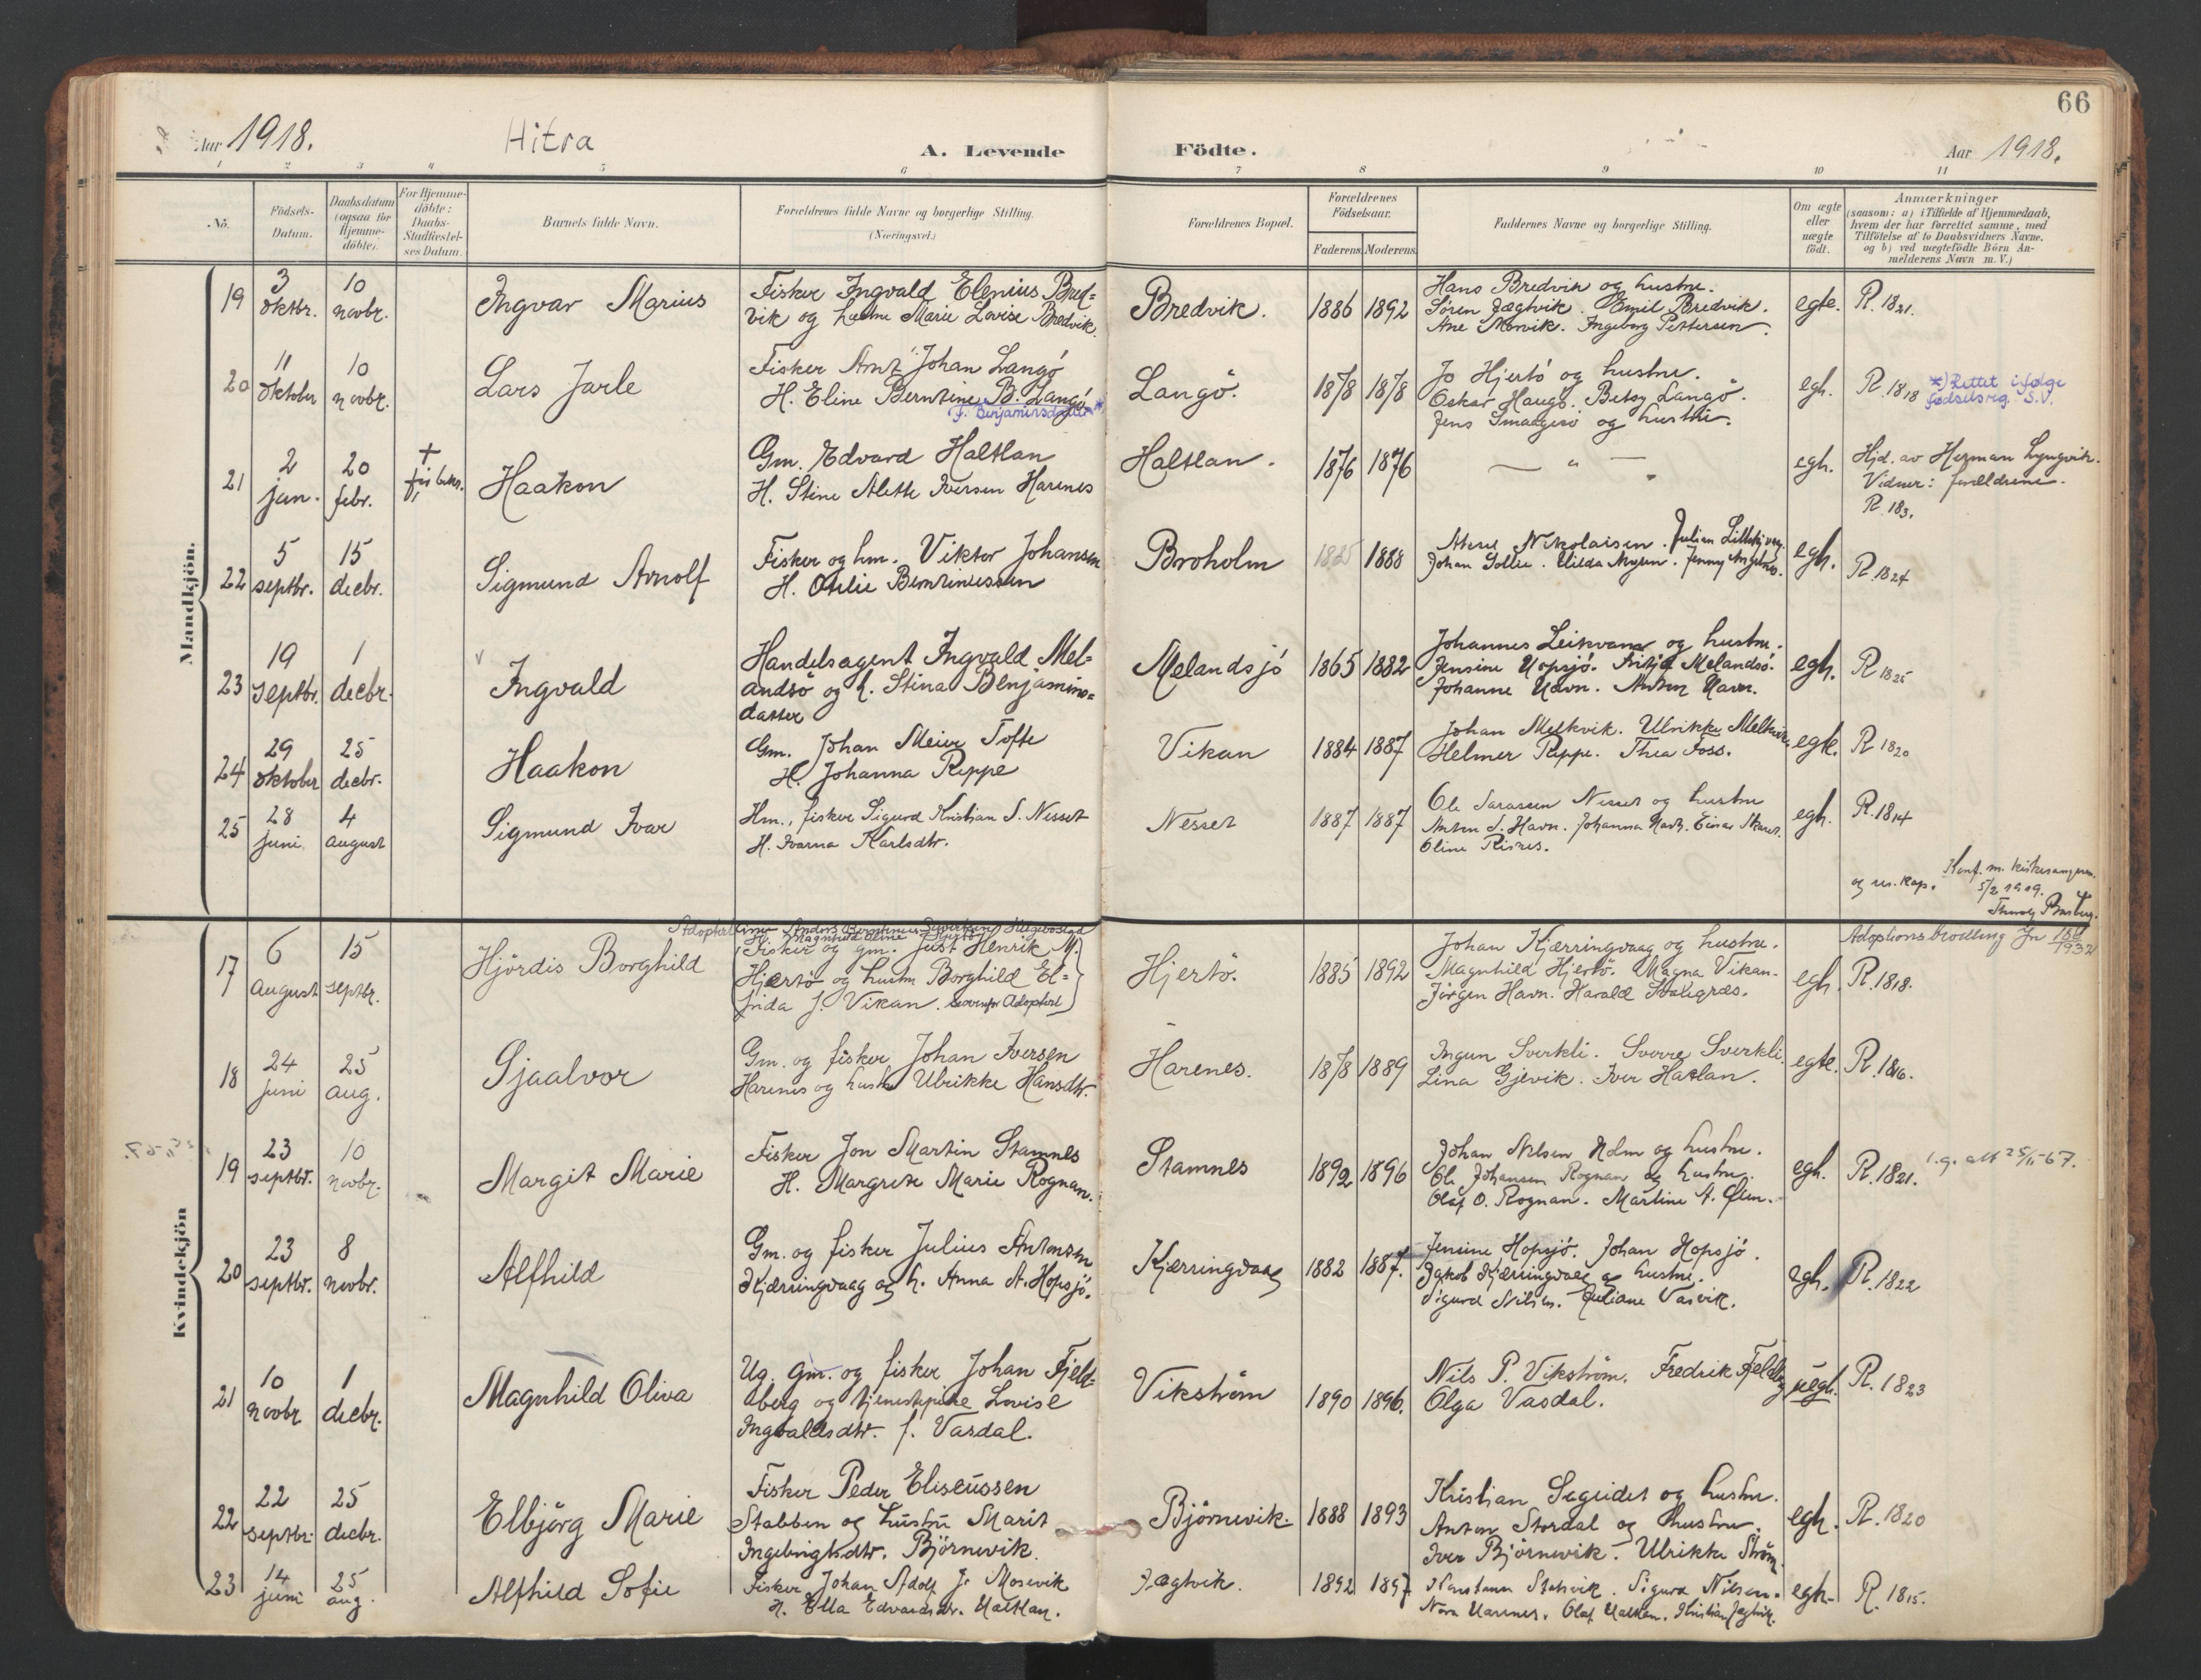 66
Aar 1918. Hitra A. Levende Födte. Aar 1918.
1 2 3 4 5 6 7 8 9 10 11
No.
Födsels-
Datum.
Daabsdatum
(ogsaa for
Hjemme-
döbte).
For Hjemme-
döbte:
Daabs-
Stadfæstel-
ses Datum.
Barnets fulde Navn.
Forældrenes fulde Navne og borgerlige Stilling.
(Næringsvei.)
Forældrenes Bopæl.
Forældrenes
Födselsaar.
Faderens. Moderens.
Faddernes Navne og borgerlige Stilling.
Om ægte
eller
uægte
födt.
Anmærkninger
(saasom: a) i Tilfælde af Hjemmedaab,
hvem der har forrettet samme, med
Tilföielse af to Daabsvidners Navne,
og b) ved uægtefödte Börn An-
melderens Navn m. V.)
Mandkjön.
19
3 oktbr.
10 novbr.
Ingvar Marius
Fisker Ingvald Elenius Bred=
vik og hustru Marie Lovise Bredvik.
Bredvik.
1886 1892
Hans Bredvik og hustru.
Sören Jægtvik. Emil Bredvik.
Ane Morvik. Ingeborg Pettersen.
egte.
R. 1821.
20
11 oktober
10 novbr.
Lars Jarle
Fisker Arnt Johan Langö
H. Eline Berntine B. Langö
(f. Benjaminsdatter*
Langö.
1878 1878
Jo Hjertö og hustru.
Oskar Haugö. Betsy Langö.
Jens Smaagesö og hustru.
egh.
R. 1818
*) Rettet ifølge
fødselsreg. S.V.
21
2 jan.
20 febr.
†
Haakon
Gm. Edvard Haltlan
H. Stine Alette Iversen Harenes
Haltlan.
1876 1876
— " —
egh.
Hjd. av Herman Lyngvik.
Vidner: forældrene.
R. 183.
22
5 septbr.
15 decbr.
Sigmund Arnolf
Fisker og hm. Viktor Johansen
H. Otelie Berntinussen
Broholm
1825 1888
Nikolaisen. Julian
Johan Gollie. Hilda
egh.
R. 1824
23
19 septbr.
1 decbr.
Ingvald
Handelsagent Ingvald Mel=
andsö og h. Stina Benjamins=
datter
Melandsjö
1865 1882
Johannes Leikvang og hustru.
Jensine Hopsjö. Fritjof Melandsö.
Johanne Havn. Anton Havn.
egh.
R. 1825
24
29 oktober
25 decbr.
Haakon
Gm. Johan Meier Tofte
H. Johanna Reppe
Vikan
1884 1887
Johan Melkvik. Ulrikke Melkvik.
Helmer Reppe. Thea Foss.
egte.
R. 1820
25
28 juni
4 august
Sigmund Ivar
Hm., fisker Sigurd Kristian S. Nesset
H. Ivarna Karlsdtr.
Nesset
1887 1887
Ole Sarassen Nesset og hustru
Anton S. Havn. Johanna Havn. Einar Skaret.
Oline Risnes.
egh.
R. 1814
Konf. m.
og res. kap. 5/2 1919.
Kvindekjön
17
6 august
15 septbr.
Hjördis Borghild
Adoptert
H. Magnhild Eline Hjertö
(Fisker og gm. Just Henrik M.
Hjertö og hustru Borghild El=
frida f. Vikan.
Hjertö.
1885 1892
Johan Kjærringvaag og hustru.
Magnhild Hjertö. Magna Vikan.
Jörgen Havn. Harald
egh.
Adoptionsbevilling Jn 156/1932
R. 1818.
18
24 juni
25 aug.
Gjaalvor
Gm. og fisker Johan Iversen
Harenes og hustru Ulrikke Hansdtr.
Harenes.
1878 1889
Ingun Sverkli. Sverre Sverkli.
Lina Gjevik. Iver Hatlan.
egte.
R. 1816.
19
23 septbr.
10 novbr.
Margit Marie
Fisker Jon Martin Stamnes
H. Margrete Marie Rognan.
Stamnes
1892 1896
Johan Nelsen Holm og hustru.
Ole Johansen Rognan og hustru.
Olaf O. Rognan. Martine A. Öien.
egh.
R. 1821.
l.g. att 25/11-67.
20
23 septbr.
8 novbr.
Alfhild
Gm. og fisker Julius Antonsen
Kjærringvaag og h. Anna A. Hopsjö.
Kjærringvaag
1882 1887.
Jensine Hopsjö. Johan Hopsjö.
Jakob Kjærringvaag og hustru.
Sigurd Nilsen. Juliane Vasvik.
egh.
R. 1822
21
10 novbr.
1 decbr.
Magnhild Oliva
Ug. gm. og fisker Johan Fjeld=
aberg og tjenestepike Lovise
Ingvaldsdtr. f. Vasdal.
Vikström
1890 1896.
Nils P. Vikström. Fredrik
Olga Vasdal.
uegh.
R. 1823
22
22 septbr.
25 decbr.
Elbjörg Marie
Fisker Peder Eliseussen
Stabben og hustru Marit
Ingebrigtsdtr. Björnevik.
Björnevik.
1888 1893
Kristian Segeidet og hustru.
Anton Stordal og hustru.
Iver Björnevik. Ulrikke Ström.
egh.
R. 1820
23
14 juni
25 aug.
Alfhild Sofie
Fisker Johan Adolf J. Mosevik
H. Ella Edvardsdtr. Haltlan.
Jægtvik.
1892 1897
Konstanse Sigurd Nilsen.
Nora Harenes. Olaf Haltlan. Kristian Jægtvik.
egh.
R. 1815.